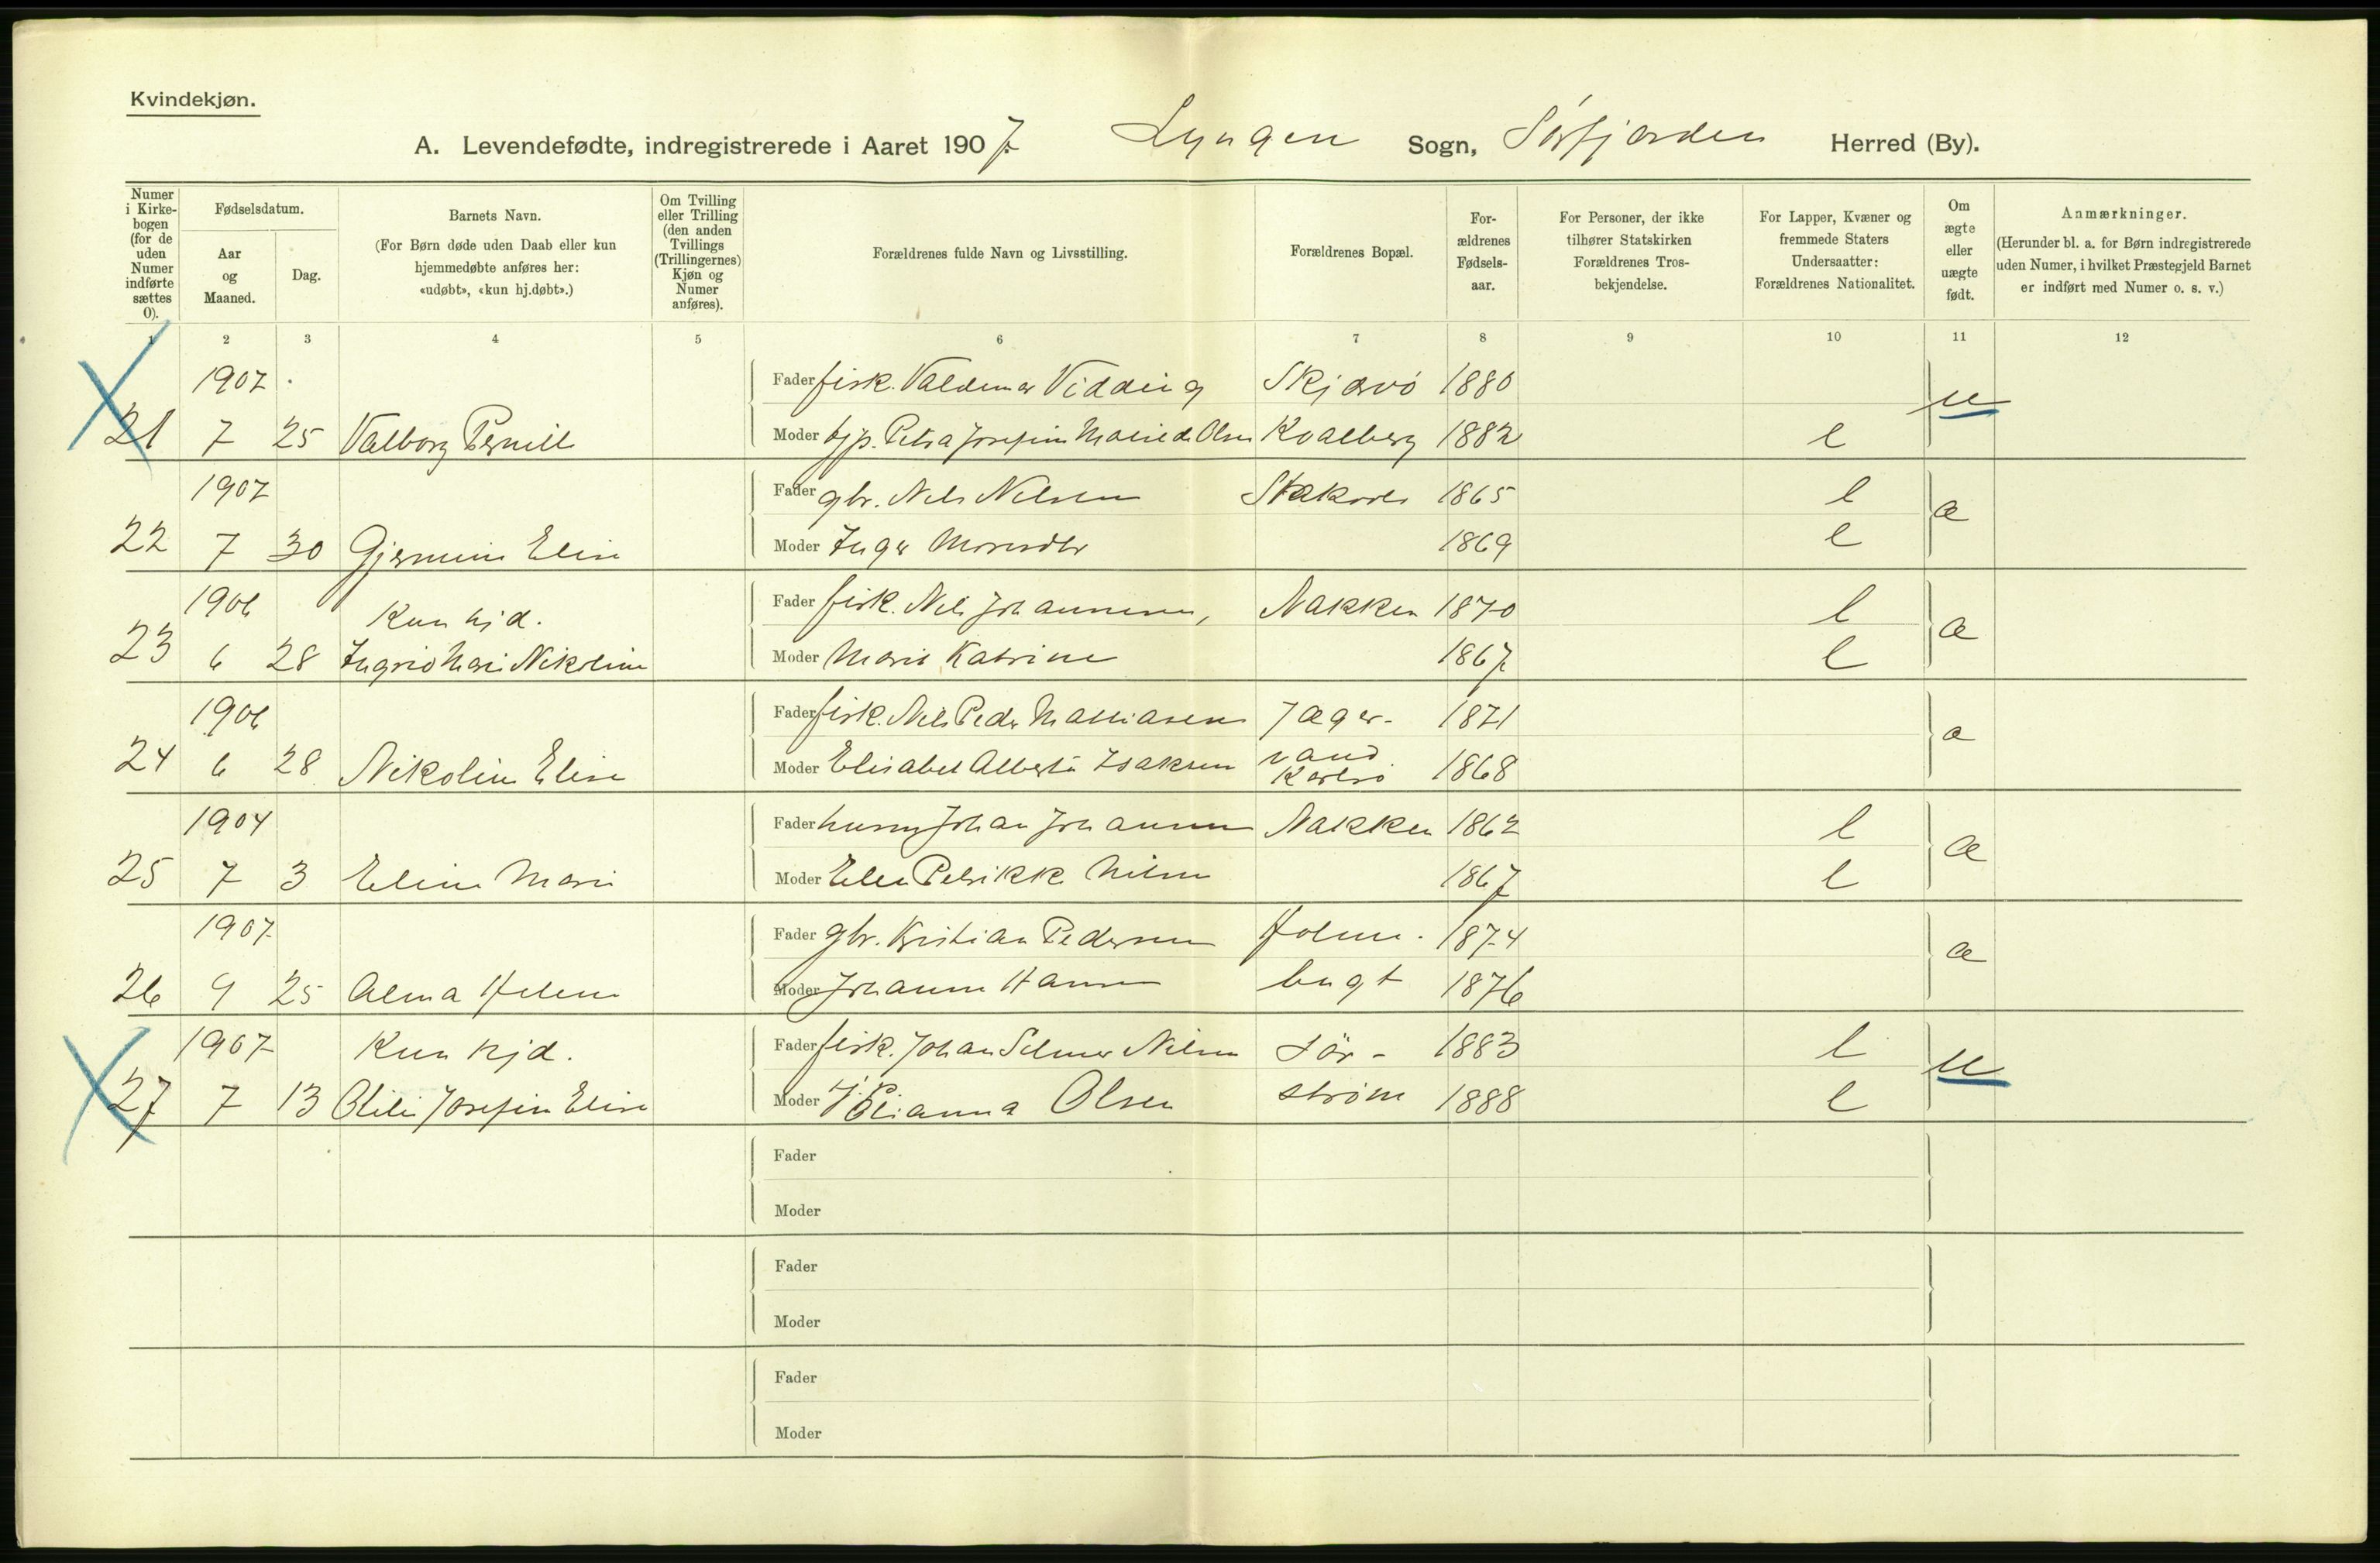 Kvindekjøn.
A. Levendefødte, indregistrerede i Aaret 1907. Lyngen Sogn, Sørfjorden Herred (By).
Numer i Kirkebogen (for de uden Numer indførte sættes 0).
Fødselsdatum.
Aar og Maaned.
Dag.
Barnets Navn.
(For Børn døde uden Daab eller kun hjemmedøbte anføres her: «udøbt», «kun hj.døbt».)
Om Tvilling eller Trilling (den anden Tvillings (Trillingernes) Kjøn og Numer anføres).
Forældrenes fulde Navn og Livsstilling.
Forældrenes Bopæl.
Forældrenes Fødselsaar.
For Personer, der ikke tilhører Statskirken Forældrenes Trosbekjendelse.
For Lapper, Kvæner og fremmede Staters Undersaatter: Forældrenes Nationalitet.
Om ægte eller uægte født.
Anmærkninger.
(Herunder bl. a. for Børn indregistrerede uden Numer, i hvilket Præstegjeld Barnet er indført med Numer o. s. v.)
1 2 3 4 5 6 7 8 9 10 11 12
1907 Fader fisk. Valdemar Vidding Skjærvö 1880 u
21 7 25 Valborg Pernill Moder Petra Josefin Olsen Kvalberg 1882 l
1907 Fader gbr. Nils Nilsen 1865 l æ
22 7 30 Elise Moder Inger 1869 l
1906 Kun hjd. Fader fisk. Nils Johannesen, Nakken 1870 l æ
23 6 28 Ingrid Mari Nikoline Moder Marit Katrine 1867 l
1906 Fader fisk. Nils Peder Mathiasen Jæger- 1871 æ
24 6 28 Nikoline Elise Moder Elisabet Alberta Isaksen vand Karlsö 1868
1904 Fader Johan Johannesen Nakken 1862 l æ
25 7 3 Eline Marie Moder Ellen Petrikke Nilsen 1867 l
1907 Fader gbr. Kristian Pedersen Holm- 1874 æ
26 9 25 Alma Helene Moder Johanne Hansen bugt 1876
1907 Kun hjd. Fader fisk. Johan Selmer Nilsen Sör- 1883 l u
27 7 13 Josefine Elise Moder Olianna Olsen ström 1888 l
Fader
Moder
Fader
Moder
Fader
Moder